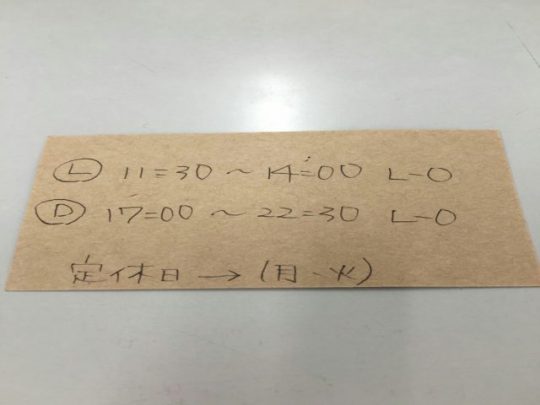 Ⓛ 11:30 ~ 14:00 L-O
Ⓓ 17:00 ~ 22:30 L-O
定休日 → (月、火)